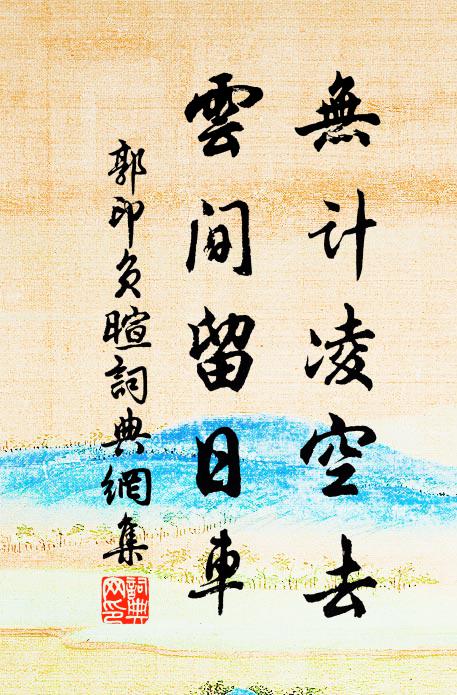 無计凌空去
雲间留日車
郭印負暄詞典網集
詞典
网印